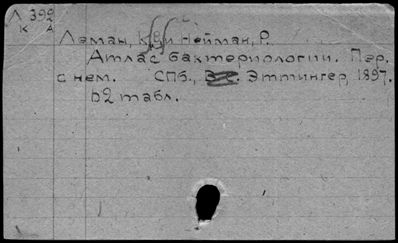 Л 392
К А
Леман, К. и Нейман, Р.
Атлас бактериологии. Пер.
с нем. СПб., Эттингер, 1897.
62 табл.